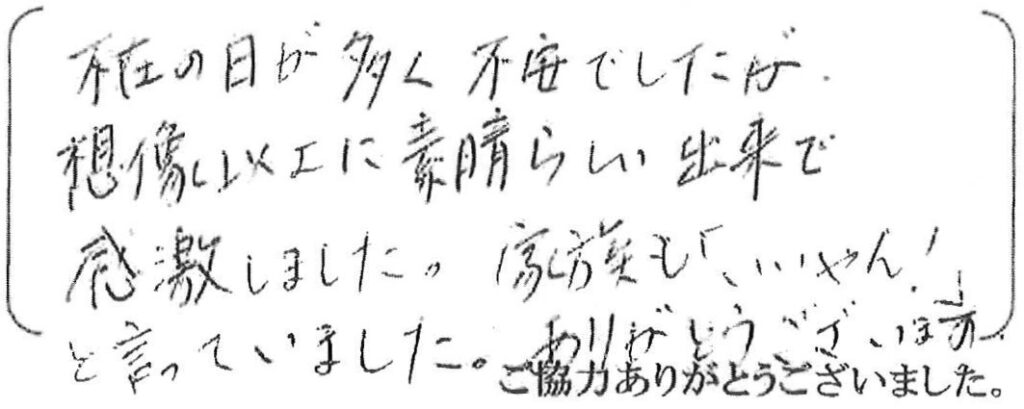 不在の日が多く不安でしたが、
想像以上に素晴らしい出来で
感激しました。家族も「いいやん！」
と言っていました。ありがとうございます
ご協力ありがとうございました。